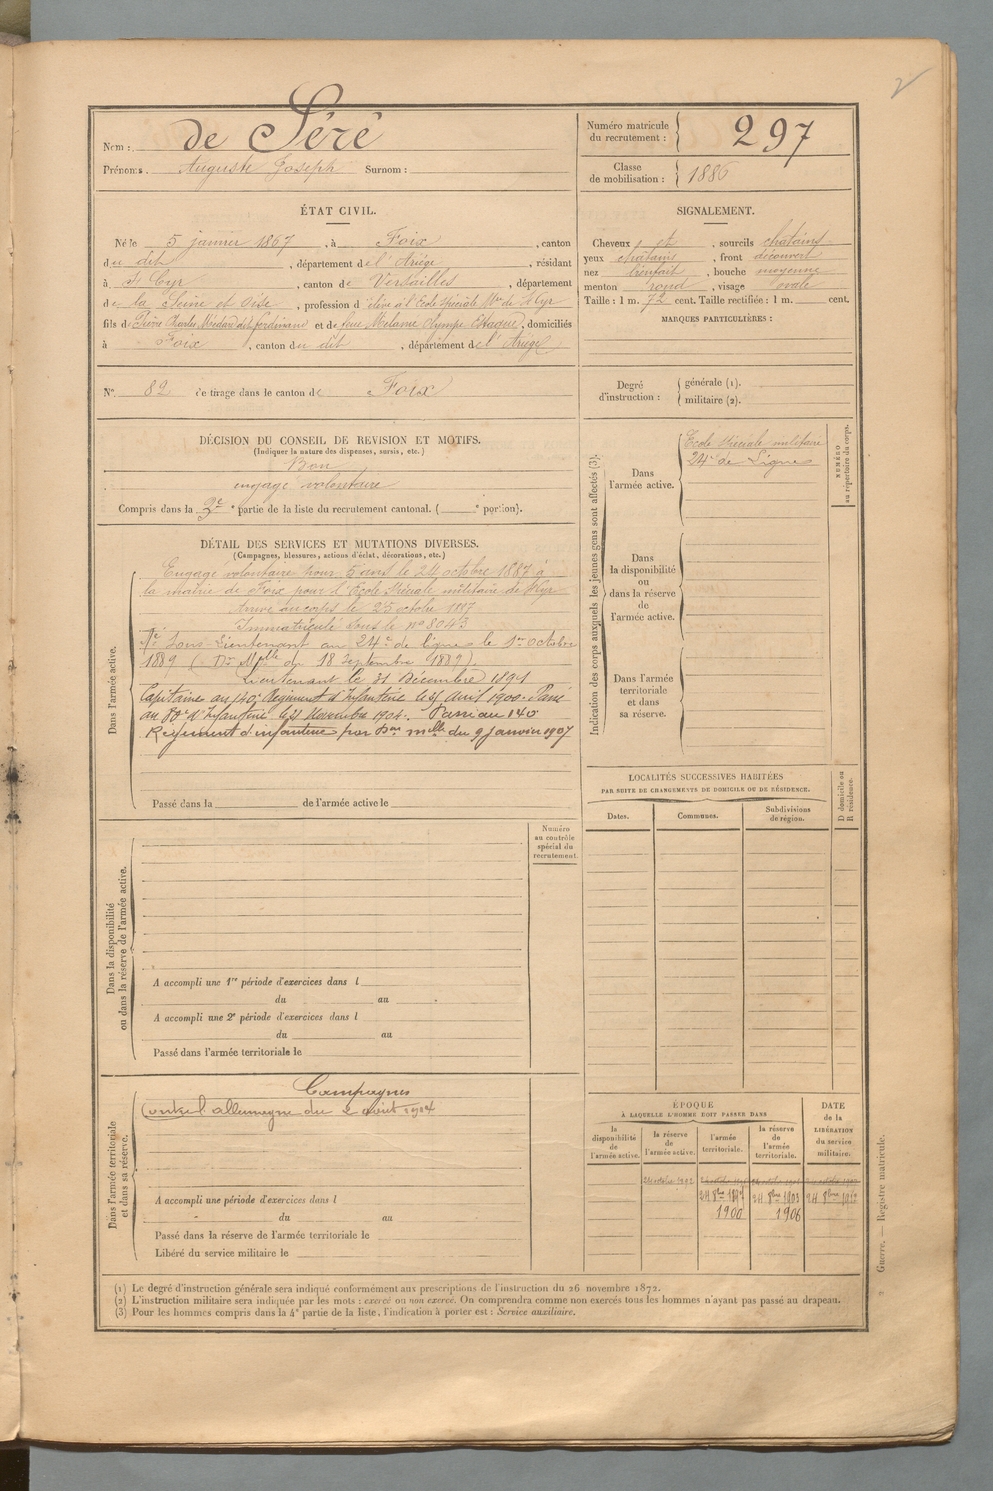 2
Nom : de Séré
Prénoms : Auguste Joseph Surnom :
Numéro matricule
du recrutement : 297
Classe
de mobilisation : 1886
ÉTAT CIVIL.
Né le 5 janvier 1867, à Foix, canton
du dit, département de l'Ariège, résidant
à St Cyr, canton de Versailles, département
de la Seine et Oise, profession d'élève à l'Ecole Spéciale Mre de St Cyr
fils de Pierre Charles Médard dit Ferdinand et de feue Mélanie Olympe, domiciliés
à Foix, canton du dit, département de l'Ariège
SIGNALEMENT.
Cheveux et, sourcils chatains
yeux chatains, front découvert
nez bienfait, bouche moyenne
menton rond, visage ovale
Taille : 1 m. 72 cent. Taille rectifiée : 1 m. cent.
MARQUES PARTICULIÈRES :
N° 82 de tirage dans le canton de Foix
Degré
d'instruction :
générale (1).
militaire (2).
DÉCISION DU CONSEIL DE REVISION ET MOTIFS.
(Indiquer la nature des dispenses, sursis, etc.)
Bon
engagé volontaire
Compris dans la 3e partie de la liste du recrutement cantonal. ( e portion).
DÉTAIL DES SERVICES ET MUTATIONS DIVERSES.
(Campagnes, blessures, actions d'éclat, décorations, etc.)
Dans l'armée active.
Engagé volontaire pour 5 ans le 24 octobre 1887 à
la mairie de Foix pour l'Ecole Spéciale militaire de St Cyr
Arrivé au corps le 25 octobre 1887
Immatriculé sous le n° 8043
Sous-Lieutenant au 24e de ligne le 1er octobre
1889 (Don Mlle du 18 Septembre 1889).
Lieutenant le 31 Décembre 1891
Capitaine au 140e Régiment d'Infanterie le Avril 1900. Passé
au d'Infanterie le Novembre 1904. Passé au 140
Régiment d'infanterie par Don mlle du 9 Janvier 1907
Passé dans la de l'armée active le
Indication des corps auxquels les jeunes gens sont affectés (3).
Dans
l'armée active.
Ecole Spéciale militaire
24e de Ligne
NUMÉRO
au répertoire du corps.
Dans
la disponibilité
ou
dans la réserve
de
l'armée active.
Dans
l'armée territoriale
et dans
sa réserve.
LOCALITÉS SUCCESSIVES HABITÉES
PAR SUITE DE CHANGEMENTS DE DOMICILE OU DE RÉSIDENCE.
Dates.
Communes.
Subdivisions
de région.
D domicile ou
R résidence.
Dans la disponibilité
ou dans la réserve de l'armée active.
Numéro
au contrôle
spécial du
recrutement.
A accompli une 1re période d'exercices dans l
du au
A accompli une 2e période d'exercices dans l
du au
Passé dans l'armée territoriale le
Dans l'armée territoriale
et dans sa réserve.
Campagnes
Contre l'allemagne du 2 août 1914
A accompli une période d'exercices dans l
du au
Passé dans la réserve de l'armée territoriale le
Libéré du service militaire le
ÉPOQUE
À LAQUELLE L'HOMME DOIT PASSER DANS
la
disponibilité
de
l'armée active.
la réserve
de
l'armée active.
l'armée
territoriale.
la réserve
de
l'armée
territoriale.
DATE
de la
LIBÉRATION
du service
militaire.
24 octobre 1892
24 8bre 1897
24 8bre 1903
24 8bre 1912
1900
1906
Guerre. — Registre matricule.
(1) Le degré d'instruction générale sera indiqué conformément aux prescriptions de l'instruction du 26 novembre 1872.
(2) L'instruction militaire sera indiquée par les mots : exercé ou non exercé. On comprendra comme non exercés tous les hommes n'ayant pas passé au drapeau.
(3) Pour les hommes compris dans la 4e partie de la liste, l'indication à porter est : Service auxiliaire.